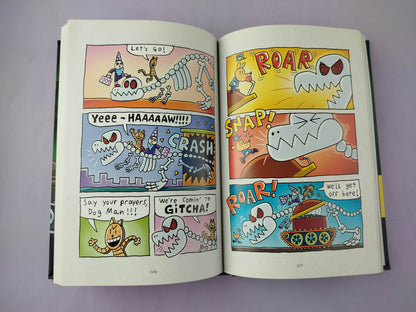 Let's Go!
Yeee - HAAAAAW!!!!
CRASH
Say your prayers,
Dog Man!!!
We're Comin' to
GITCHA!
126
ROAR
SNAP!
ROAR!
We'll get
off here!
127